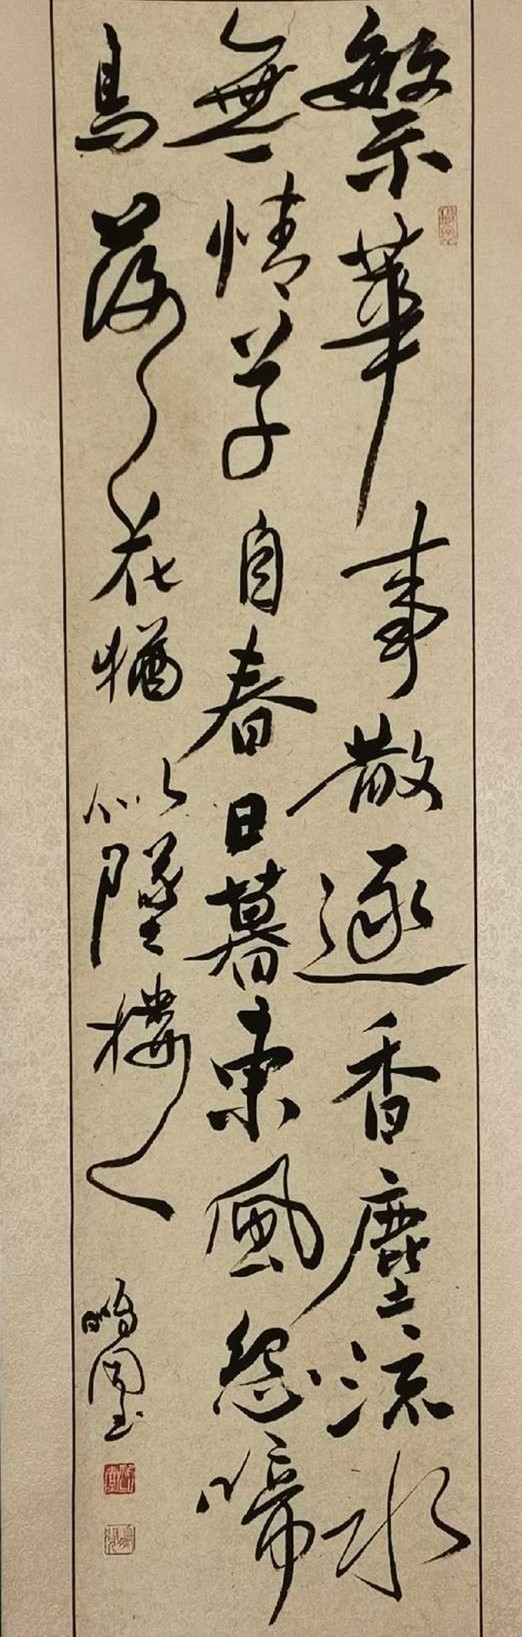 繁華事散逐香塵流水
無情草自春日暮東風怨啼
鳥落花猶似墜樓人